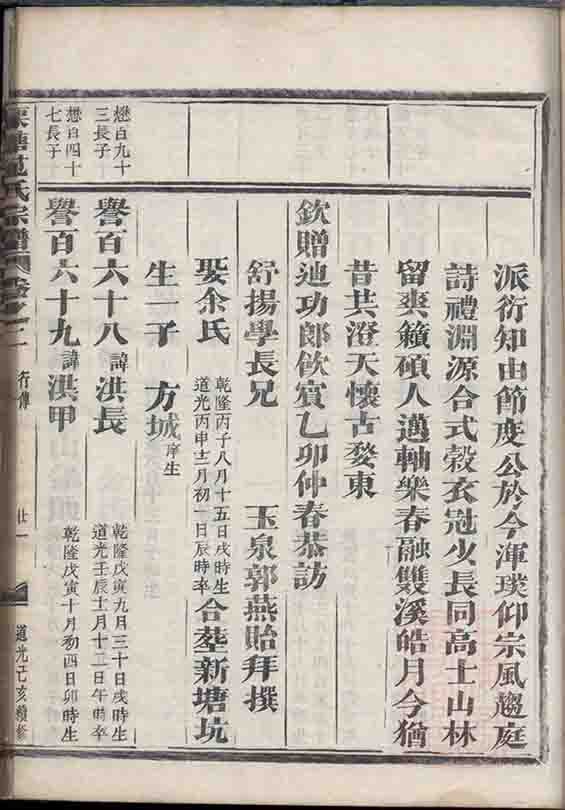 派衍知由節度公於今渾璞仰宗風趨庭
詩禮淵源合式穀衣冠少長同高士山林
留爽籟碩人邁軸樂春融雙溪皓月今猶
昔共澄天懷古婺東
欽贈迪功郎飲賓乙卯仲春恭訪
舒揚學長兄 玉泉郭燕貽拜撰
娶余氏 乾隆丙子八月十五日戌時生
道光丙申十二月初一日辰時卒 合塟新塘坑
生一子 方城庠生
懋百九十
三長子
譽百六十八諱洪長 乾隆戊寅九月三十日戌時生
道光壬辰十二月十二日午時卒
懋百四十
七長子
譽百六十九諱洪甲 乾隆戊寅十月初四日卯時生
范氏宗譜 卷之二 行傳 廿一 道光己亥續修